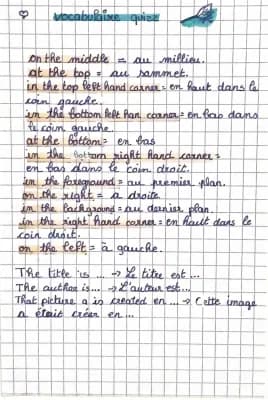 vocabulaire quizz
on the middle = au millieu.
at the top = au sommet.
in the top left hand corner = en haut dans le
coin gauche.
in the bottom left han corner = en bas dans
le coin gauche.
at the bottom = en bas
in the bottom right hand corner =
en bas dans le coin droit.
in the foreground = au premier plan.
on the right = à droite.
in the background = au dernier plan.
in the right hand corner = en hault dans le
coin droit.
on the left = à gauche.
The title is ... → Le titre est ...
The author is ... → L'auteur est ...
That picture a is created en ... → Cette image
a était créer en ...